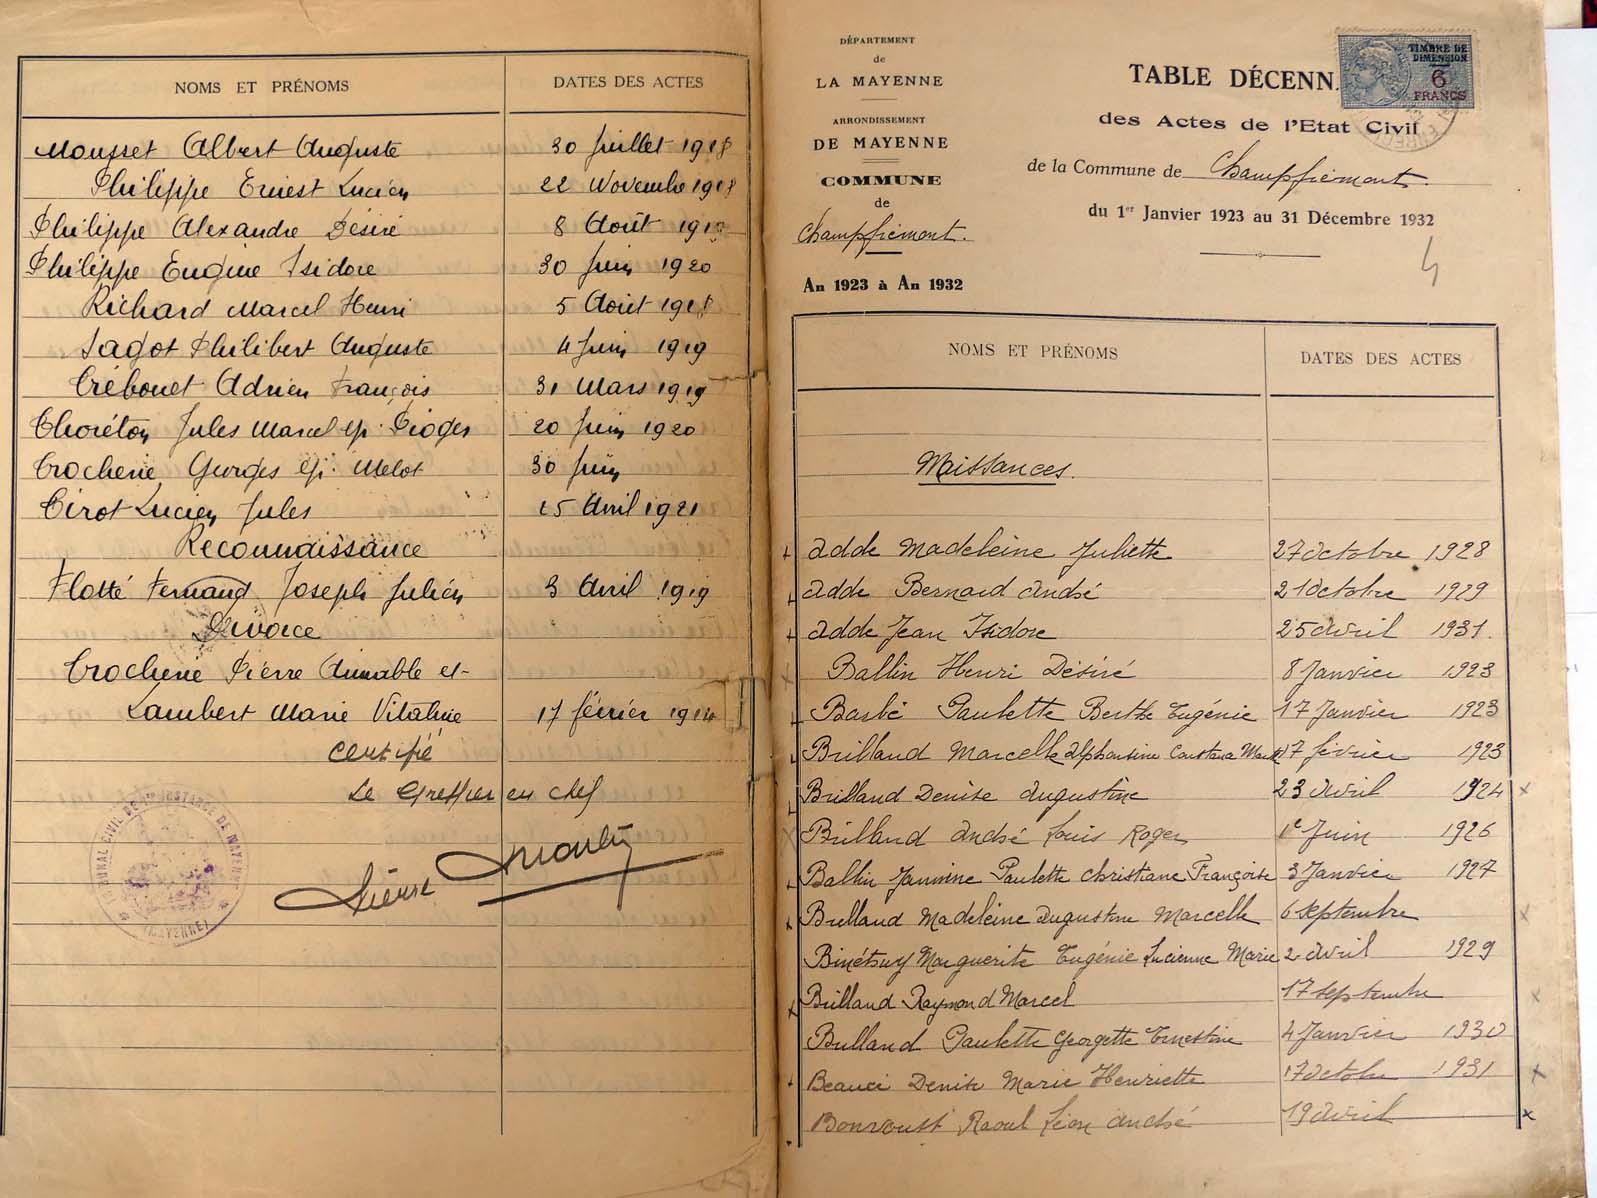 NOMS ET PRÉNOMS DATES DES ACTES
Mousset Albert Auguste 30 Juillet 1918
Philippe Ernest Lucien 22 Novembre 1918
Philippe Alexandre Désiré 8 Août 1919
Philippe Eugène Isidore 30 Juin 1920
Richard Marcel Henri 5 Août 1918
Sagot Philibert Auguste 4 Juin 1919
Trébouet Adrien François 31 Mars 1919
Thoréton Jules Marcel ep. Pioger 20 Juin 1920
Trocherie Georges ep. Melot 30 Juin
Tirot Lucien Jules 15 Avril 1921
Reconnaissance
Flotté Fernand Joseph Julien 3 Avril 1919
Divorce
Trocherie Pierre Aimable et
Lambert Marie Vitaline 17 février 1914
certifié
Le Greffier en chef
TRIBUNAL CIVIL DE 1ère INSTANCE DE MAYENNE
(MAYENNE)
DÉPARTEMENT
de
LA MAYENNE
ARRONDISSEMENT
DE MAYENNE
COMMUNE
de
Champfrémont.
An 1923 à An 1932
TABLE DÉCENN
TIMBRE DE
DIMENSION
6
FRANCS
des Actes de l'Etat Civil
de la Commune de Champfrémont.
du 1er Janvier 1923 au 31 Décembre 1932
NOMS ET PRÉNOMS DATES DES ACTES
Naissances.
Adde Madeleine Juliette 27 octobre 1928
Adde Bernard André 21 octobre 1929
Adde Jean Isidore 25 avril 1931.
Ballin Henri Désiré 8 Janvier 1923
Barbé Paulette Berthe Eugénie 17 Janvier 1923
Brilland Marcelle Alphonsine Constance Marie 17 février 1923
Brilland Denise Augustine 23 Avril 1924
Brilland André Louis Roger 1e Juin 1926
Ballin Jannine Paulette Christiane Françoise 3 Janvier 1927
Brilland Madeleine Augustine Marcelle 6 septembre
Binétruy Marguerite Eugénie Lucienne Marie 2 avril 1929
Brilland Raymond Marcel 17 septembre
Brilland Paulette Georgette Ernestine 4 Janvier 1930
Beauci Denise Marie Henriette 17 octobre 1931
Bonvoust Raoul Léon André 19 avril